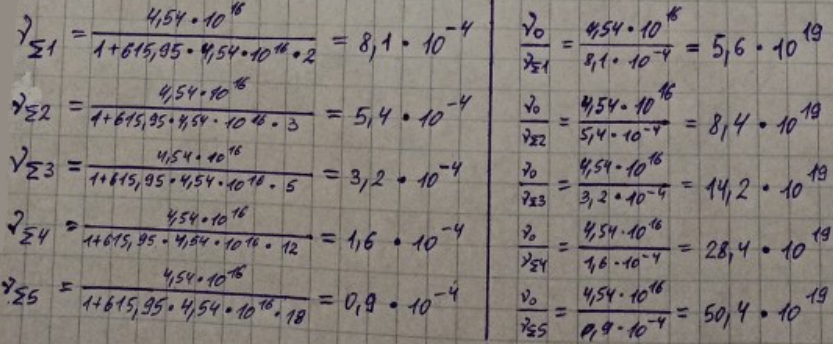 ν_Σ1 = 4,54·10^16 / (1+615,95·4,54·10^16·2) = 8,1·10^-4
ν_Σ2 = 4,54·10^16 / (1+615,95·4,54·10^16·3) = 5,4·10^-4
ν_Σ3 = 4,54·10^16 / (1+615,95·4,54·10^16·5) = 3,2·10^-4
ν_Σ4 = 4,54·10^16 / (1+615,95·4,54·10^16·12) = 1,6·10^-4
ν_Σ5 = 4,54·10^16 / (1+615,95·4,54·10^16·18) = 0,9·10^-4
ν_0/ν_Σ1 = 4,54·10^16 / 8,1·10^-4 = 5,6·10^19
ν_0/ν_Σ2 = 4,54·10^16 / 5,4·10^-4 = 8,4·10^19
ν_0/ν_Σ3 = 4,54·10^16 / 3,2·10^-4 = 14,2·10^19
ν_0/ν_Σ4 = 4,54·10^16 / 1,6·10^-4 = 28,4·10^19
ν_0/ν_Σ5 = 4,54·10^16 / 0,9·10^-4 = 50,4·10^19